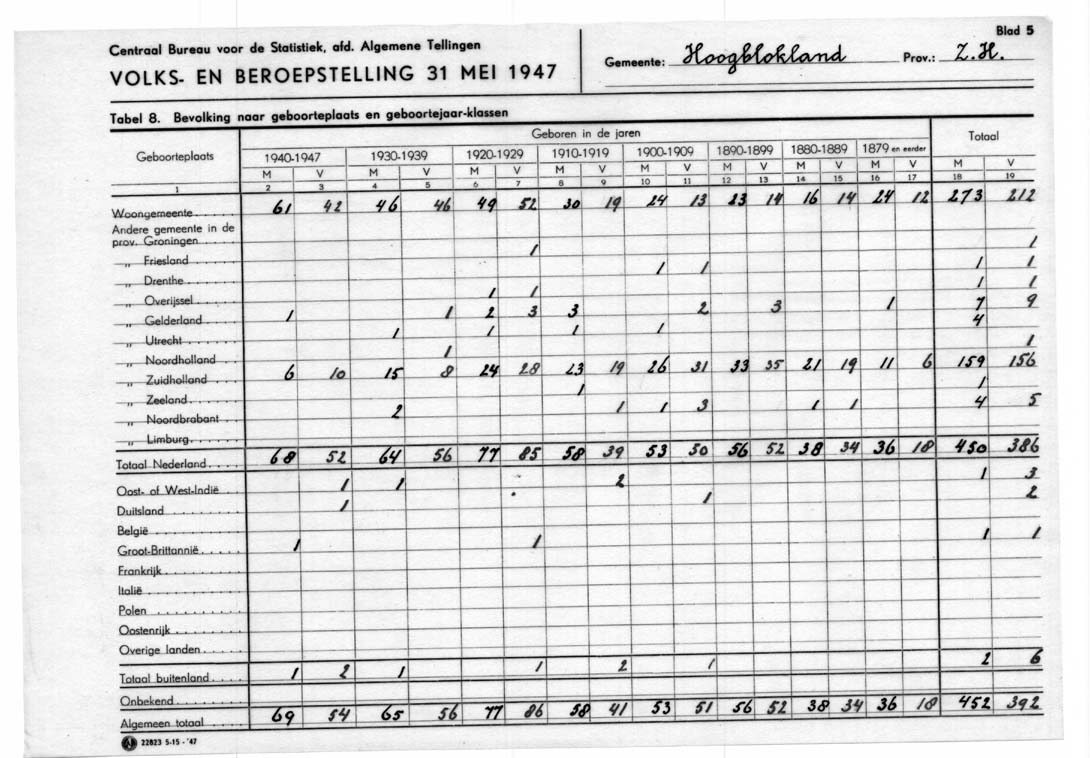 Centraal Bureau voor de Statistiek, afd. Algemene Tellingen
VOLKS- EN BEROEPSTELLING 31 MEI 1947
Blad 5
Gemeente: Hoogblokland Prov.: Z.H.
Tabel 8. Bevolking naar geboorteplaats en geboortejaar-klassen
Geboorteplaats Geboren in de jaren Totaal
1940-1947 1930-1939 1920-1929 1910-1919 1900-1909 1890-1899 1880-1889 1879 en eerder
M V M V M V M V M V M V M V M V M V
1 2 3 4 5 6 7 8 9 10 11 12 13 14 15 16 17 18 19
Woongemeente..... 61 42 46 46 49 52 30 19 24 13 23 14 16 14 24 12 273 212
Andere gemeente in de
prov. Groningen..... 1 1
„ Friesland..... 1 1 1 1
„ Drenthe.....
„ Overijssel..... 1 1 1 1
„ Gelderland.... 1 1 2 3 3 2 3 1 7 9
„ Utrecht..... 1 1 1 1 4
„ Noordholland... 1 1
„ Zuidholland.... 6 10 15 8 24 28 23 19 26 31 33 35 21 19 11 6 159 156
„ Zeeland..... 1 1
„ Noordbrabant... 2 1 1 3 1 1 4 5
„ Limburg.....
Totaal Nederland.... 68 52 64 56 77 85 58 39 53 50 56 52 38 34 36 18 450 386
Oost- of West-Indië.. 1 1 2 1 3
Duitsland....... 1 1 2
België.........
Groot-Brittannië..... 1 1 1 1
Frankrijk........
Italië..........
Polen.........
Oostenrijk.......
Overige landen.....
Totaal buitenland.... 1 2 1 1 2 1 2 6
Onbekend.......
Algemeen totaal.... 69 54 65 56 77 86 58 41 53 51 56 52 38 34 36 18 452 392
22823 5-15-'47